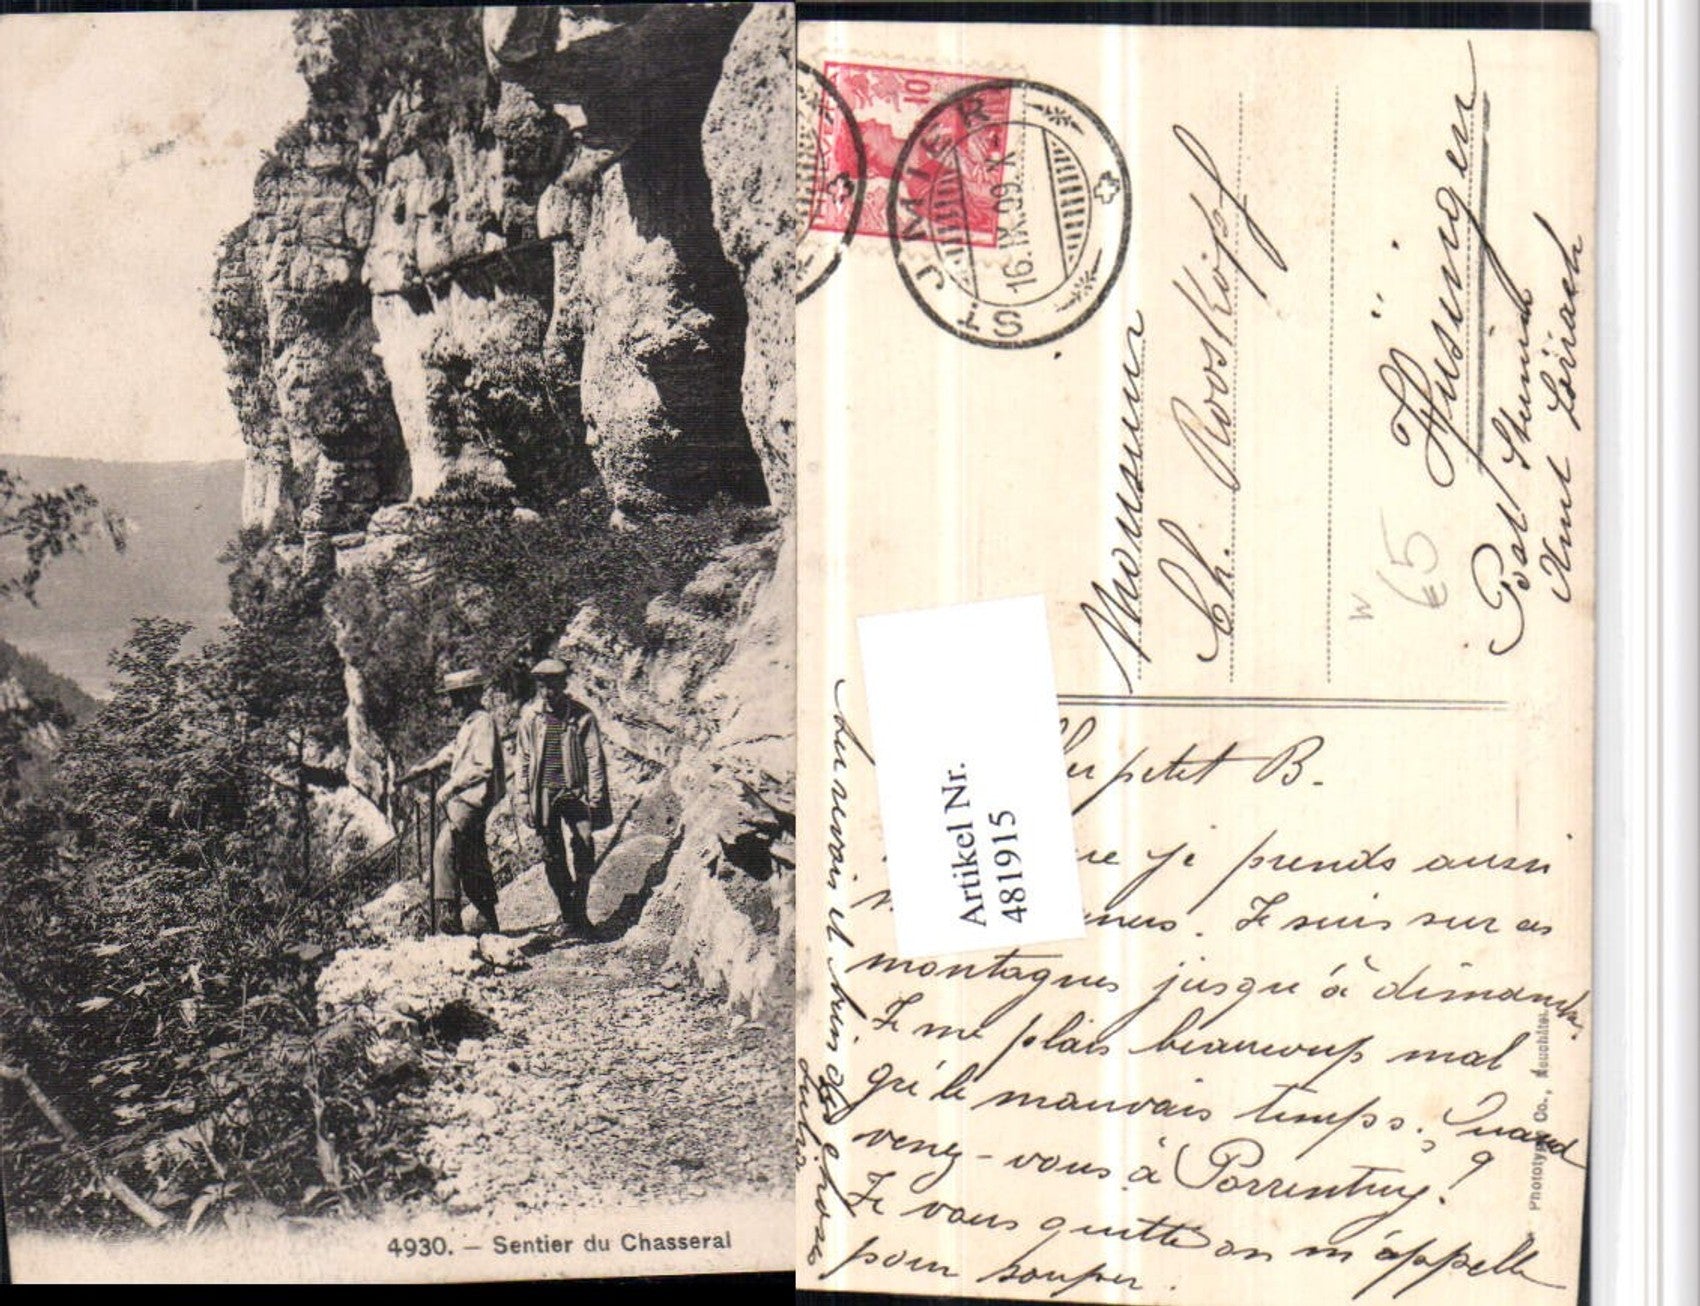 4930. — Sentier du Chasseral
10
ST IMIER
16.IX.09 X-
Monsieur
Ch. Rooskopf
Hüsingen
Post Steinen
Amt Lörrach
€5
W
Artikel Nr.
481915
petit B.
je prends aussi
Je suis sur ces
montagnes jusqu'à dimanche
Je me plais beaucoup mal
gré le mauvais temps. Quand
venez-vous à Porrentruy?
Je vous quitte on m'appelle
pour souper.
Au revoir et bien des choses
Phototypie Co., Neuchâtel